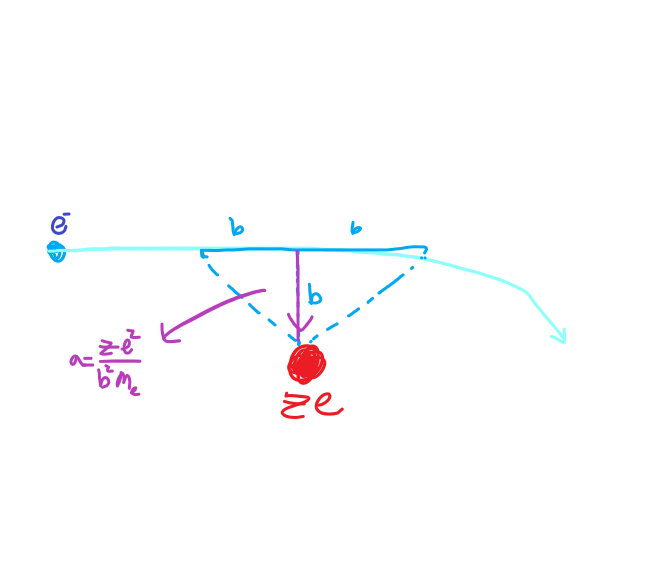 e⁻
b b
b
a = ze²/b²mₑ
ze